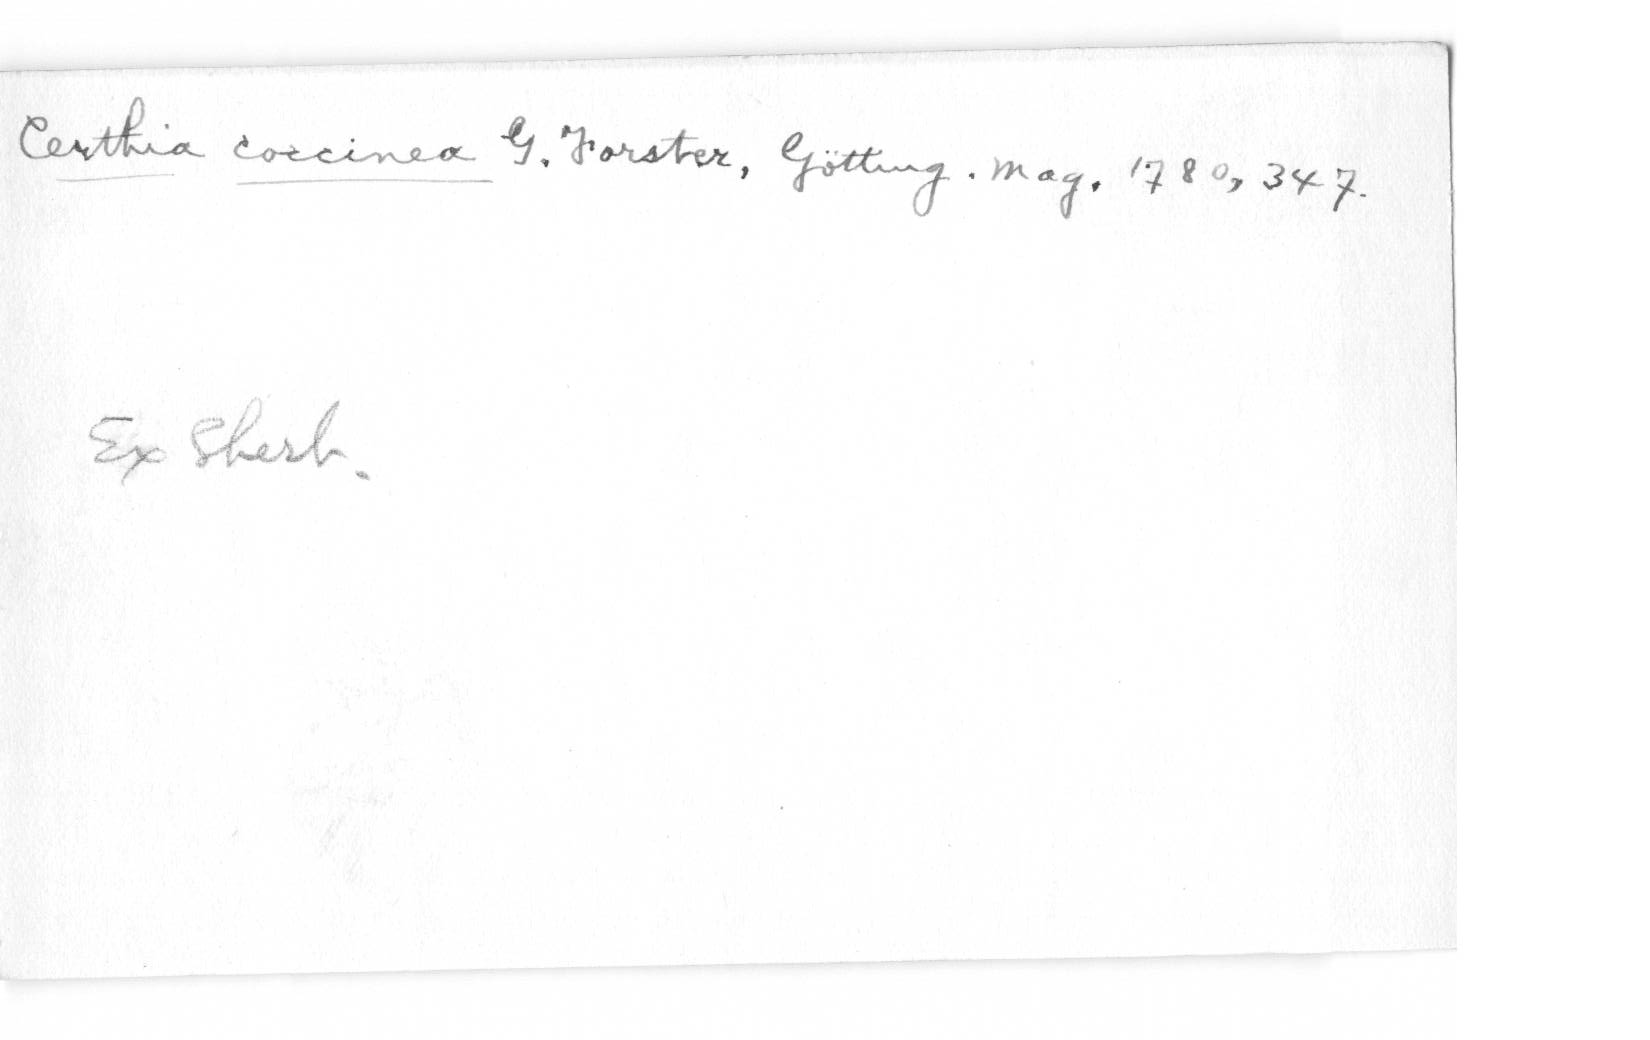 Certhia coccinea G. Forster, Götting. Mag. 1780, 347.
Ex Sherb.